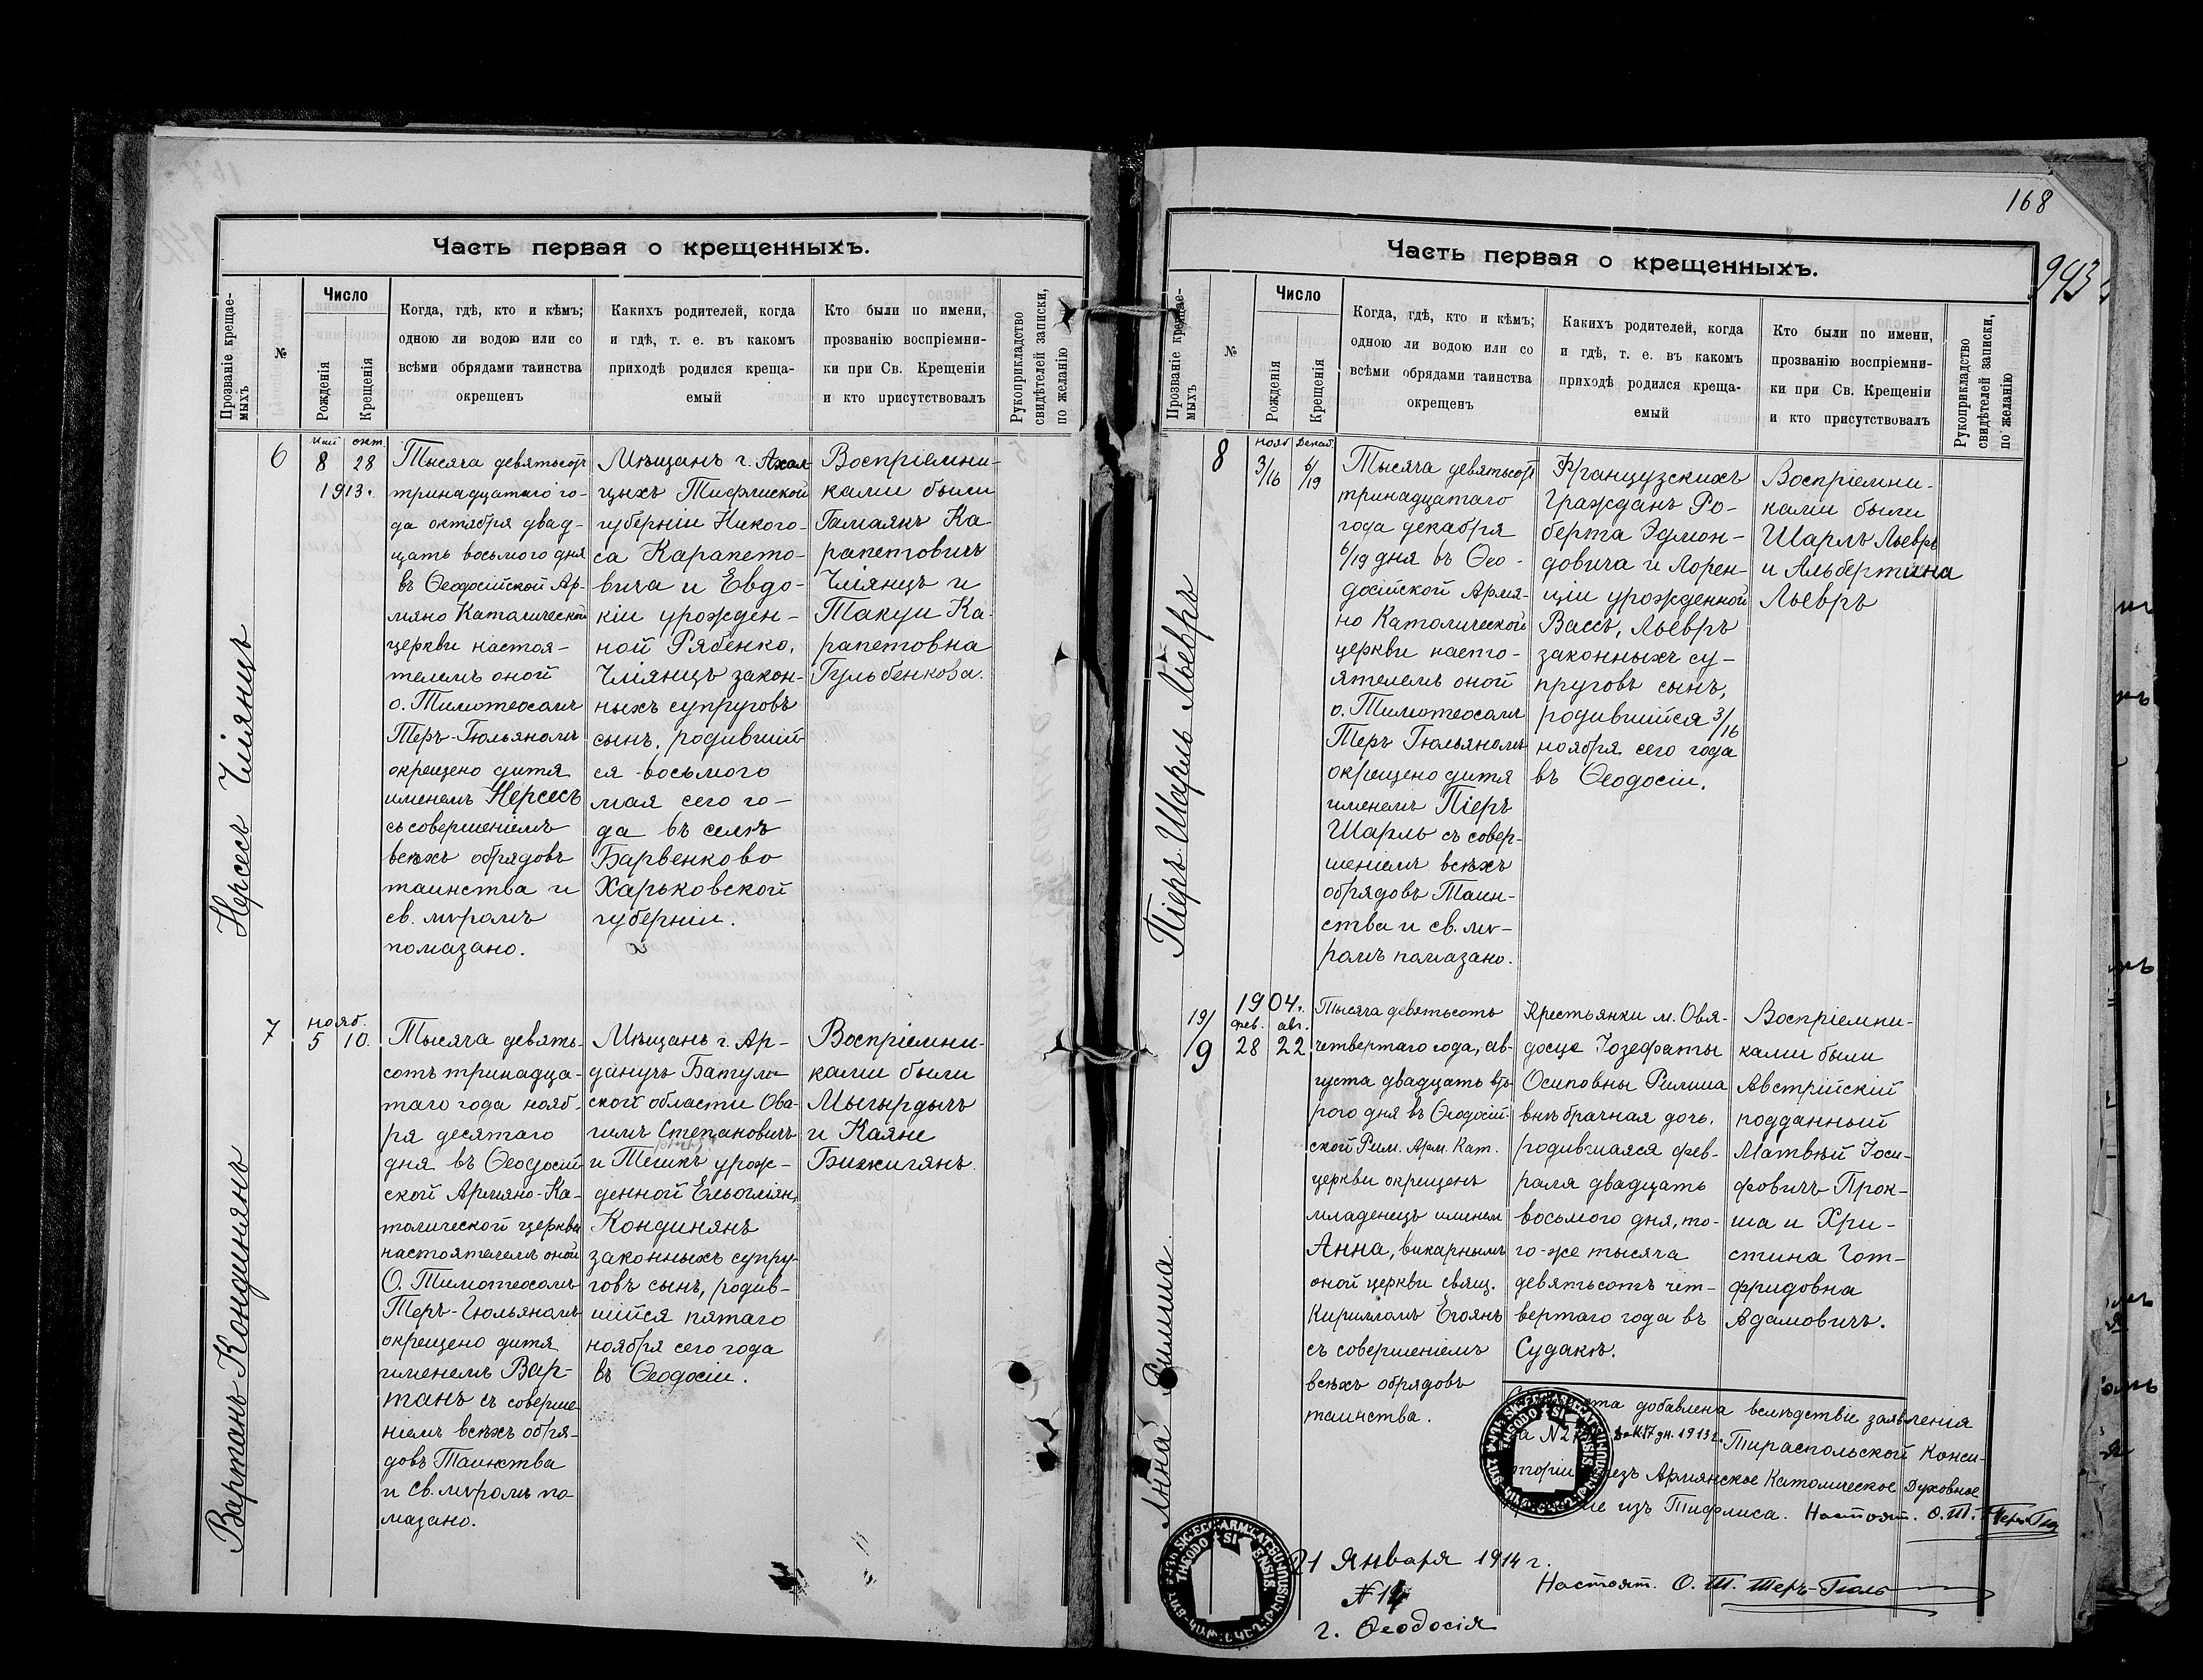 Часть первая о крещенныхъ.
Прозваніе крещае-
мыхъ
№
Число
Рожденія
Крещенія
Когда, гдѣ, кто и кѣмъ;
одною ли водою или со
всѣми обрядами таинства
окрещенъ
Какихъ родителей, когда
и гдѣ, т. е. въ какомъ
приходѣ родился креща-
емый
Кто были по имени,
прозванію воспріемни-
ки при Св. Крещеніи
и кто присутствовалъ
Рукоприкладство
свидѣтелей записки,
по желанію
Нерсесъ Чліянцъ
6
май окт.
8 28
1913.
Тысяча девятьсотъ
тринадцатаго го-
да октября двад-
цать восьмого дня
въ Ѳеодосійской Ар-
мяно Католической
церкви настоя-
телемъ оной
о. Тимотеосомъ
Теръ-Гюльяномъ
окрещено дитя
именемъ Нерсесъ
съ совершеніемъ
всѣхъ обрядовъ
таинства и
св. мѵромъ
помазано.
Мѣщанъ г. Ахал-
цыхъ Тифлиской
губерніи Никого-
са Карапето-
вича и Евдо-
кіи урожден-
ной Рябенко,
Чліянцъ закон-
ныхъ супруговъ
сынъ, родившій-
ся восьмого
мая сего го-
да въ селѣ
Барвенково
Харьковской
губерніи.
Воспріемни-
ками были
Гамаякъ Ка-
рапетовичъ
Чліянцъ и
Такуи Ка-
рапетовна
Гульбенкова.
Вартанъ Кондинянъ
7
нояб.
5 10.
Тысяча девять-
сотъ тринадца-
таго года нояб-
ря десятаго
дня въ Ѳеодосій-
ской Армяно-Ка-
толической церкви
настоятелемъ оной
О. Тимотеосомъ
Теръ-Гюльяномъ
окрещено дитя
именемъ Вар-
танъ съ соверше-
ніемъ всѣхъ обря-
довъ Таинства
и Св. мѵромъ по-
мазано.
Мѣщанъ г. Ар-
данучъ Батум-
ской области Ова-
гимъ Степановичъ
и Тешкъ урож-
денной Ельогліян,
Кондинянъ
законныхъ супру-
говъ сынъ, родив-
шійся пятаго
ноября сего года
въ Ѳеодосіи.
Воспріемни-
ками были
Мыгырдычъ
и Каяне
Бижигянъ.
168
943
Часть первая о крещенныхъ.
Прозваніе крещае-
мыхъ
№
Число
Рожденія
Крещенія
Когда, гдѣ, кто и кѣмъ;
одною ли водою или со
всѣми обрядами таинства
окрещенъ
Какихъ родителей, когда
и гдѣ, т. е. въ какомъ
приходѣ родился креща-
емый
Кто были по имени,
прозванію воспріемни-
ки при Св. Крещеніи
и кто присутствовалъ
Рукоприкладство
свидѣтелей записки,
по желанію
Піеръ Шарль Льевръ
8
нояб Декаб.
3/16 6/19
Тысяча девятьсотъ
тринадцатаго
года декабря
6/19 дня въ Ѳео-
досійской Армя-
но Католической
церкви насто-
ятелемъ оной
о. Тимотеосомъ
Теръ Гюльяномъ
окрещено дитя
именемъ Піеръ
Шарль съ совер-
шеніемъ всѣхъ
обрядовъ Таин-
ства и св. мѵ-
ромъ помазано.
Французскихъ
Гражданъ Ро-
берта Эдмон-
довича и Лорен-
ціи урожденной
Вассъ, Льевръ
законныхъ су-
пруговъ сынъ,
родившийся 3/16
ноября сего года
въ Ѳеодосіи.
Воспріемни-
ками были
Шарль Льевръ
и Альбертина
Льевръ
Анна Римша
19/9
1904 г.
фев. авг.
28 22
Тысяча девятьсотъ
четвертаго года, ав-
густа двадцать вто-
рого дня въ Ѳеодосій-
ской Рим. Арм. Кат.
церкви окрещенъ
младенецъ именем
Анна, викарнымъ
оной церкви свящ.
Кирилломъ Егоянъ
съ совершеніемъ
всѣхъ обрядовъ
таинства.
Крестьянки м. Овя-
досце Іозефаты
Осиповны Римша
внѣбрачная дочь,
родившаяся фев-
раля двадцать
восьмого дня, то-
го-же тысяча
девятьсотъ чет-
вертаго года въ
Судакѣ.
Воспріемни-
ками были
Австрійскій
подданный
Матвѣй Іоси-
фовичъ Прок-
ша и Хри-
стина Гот-
фридовна
Адамовичъ.
добавлена вслѣдствіе заявленія
1913 г. Тираспольской Конси-
Армянское Католическое Духовное
изъ Тифлиса. Настоят. О. Т. Теръ-Гюл
21 Января 1914 г.
№ 14
г. Ѳеодосія
Настоят. О. Т. Теръ-Гюль